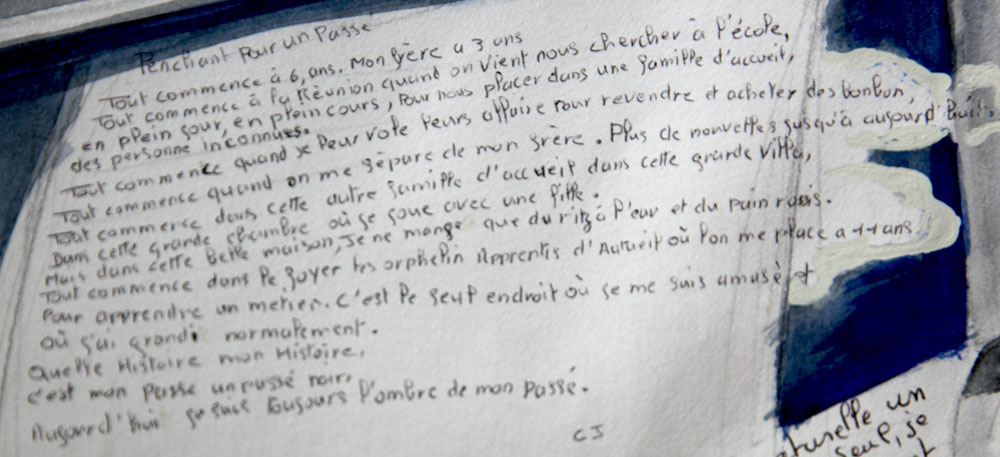 Penchant Pour un Passe
Tout commence à 6, ans. Mon frère a 3 ans
Tout commence à la Réunion quand on vient nous chercher à l'école,
en plein jour, en plein cours, Pour nous placer dans une famille d'accueil,
des personne inconnues.
Tout commence quand je leur vole leurs affaire pour revendre et acheter des bonbon,
Tout commence quand on me sépare de mon frère. Plus de nouvelles jusqu'à aujourd'hui.
Tout commence dans cette autre famille d'accueil dans cette grande villa,
Dans cette grande chambre où je joue avec une fille.
Mais dans cette Belle maison, Je ne mange que du riz à l'eau et du pain rassis.
Tout commence dans le foyer les orphelin Apprentis d'Auteuil où l'on me place a 11 ans
Pour apprendre un metier. C'est le seul endroit où je me suis amusè et
où j'ai grandi normalement.
Quelle Histoire mon Histoire,
c'est mon passe un passé noir,
Aujourd'hui je suis toujours l'ombre de mon passé.
CJ
turelle un
seul, je